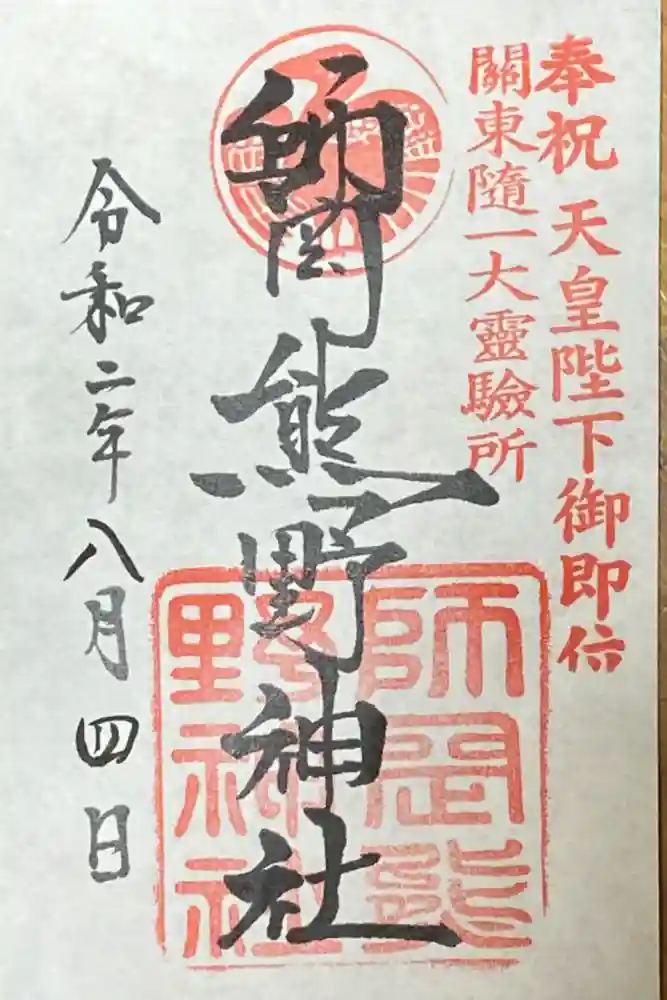 奉祝 天皇陛下御即位
關東隨一大靈驗所
師岡熊野神社
令和二年八月四日
師岡熊
野神社